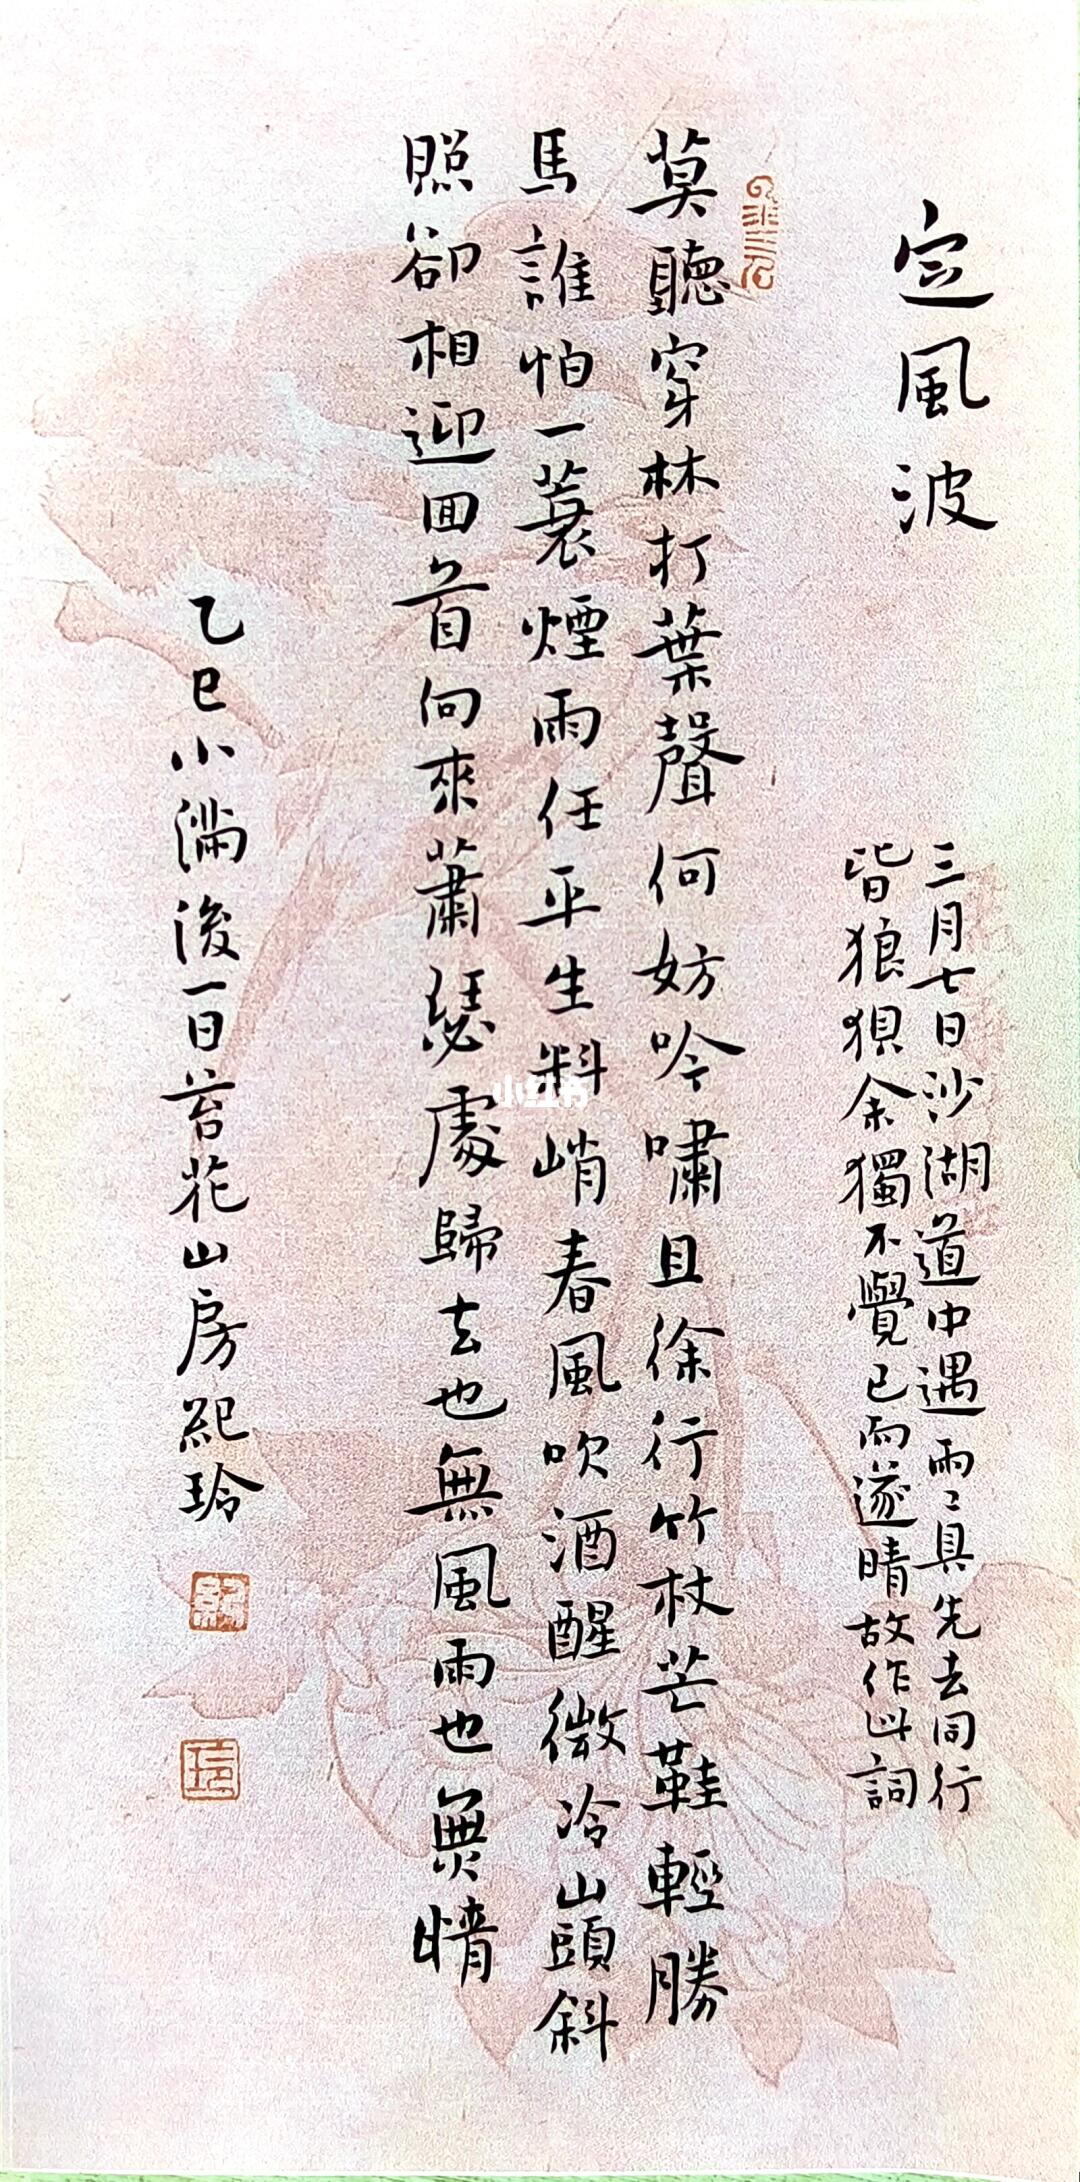 定風波
三月七日沙湖道中遇雨雨具先去同行
皆狼狽余獨不覺已而遂晴故作此詞
莫聽穿林打葉聲何妨吟嘯且徐行竹杖芒鞋輕勝
馬誰怕一蓑煙雨任平生料峭春風吹酒醒微冷山頭斜
照卻相迎回首向來蕭瑟處歸去也無風雨也無晴
乙巳小滿後一日苔花山房紀玲
小红书